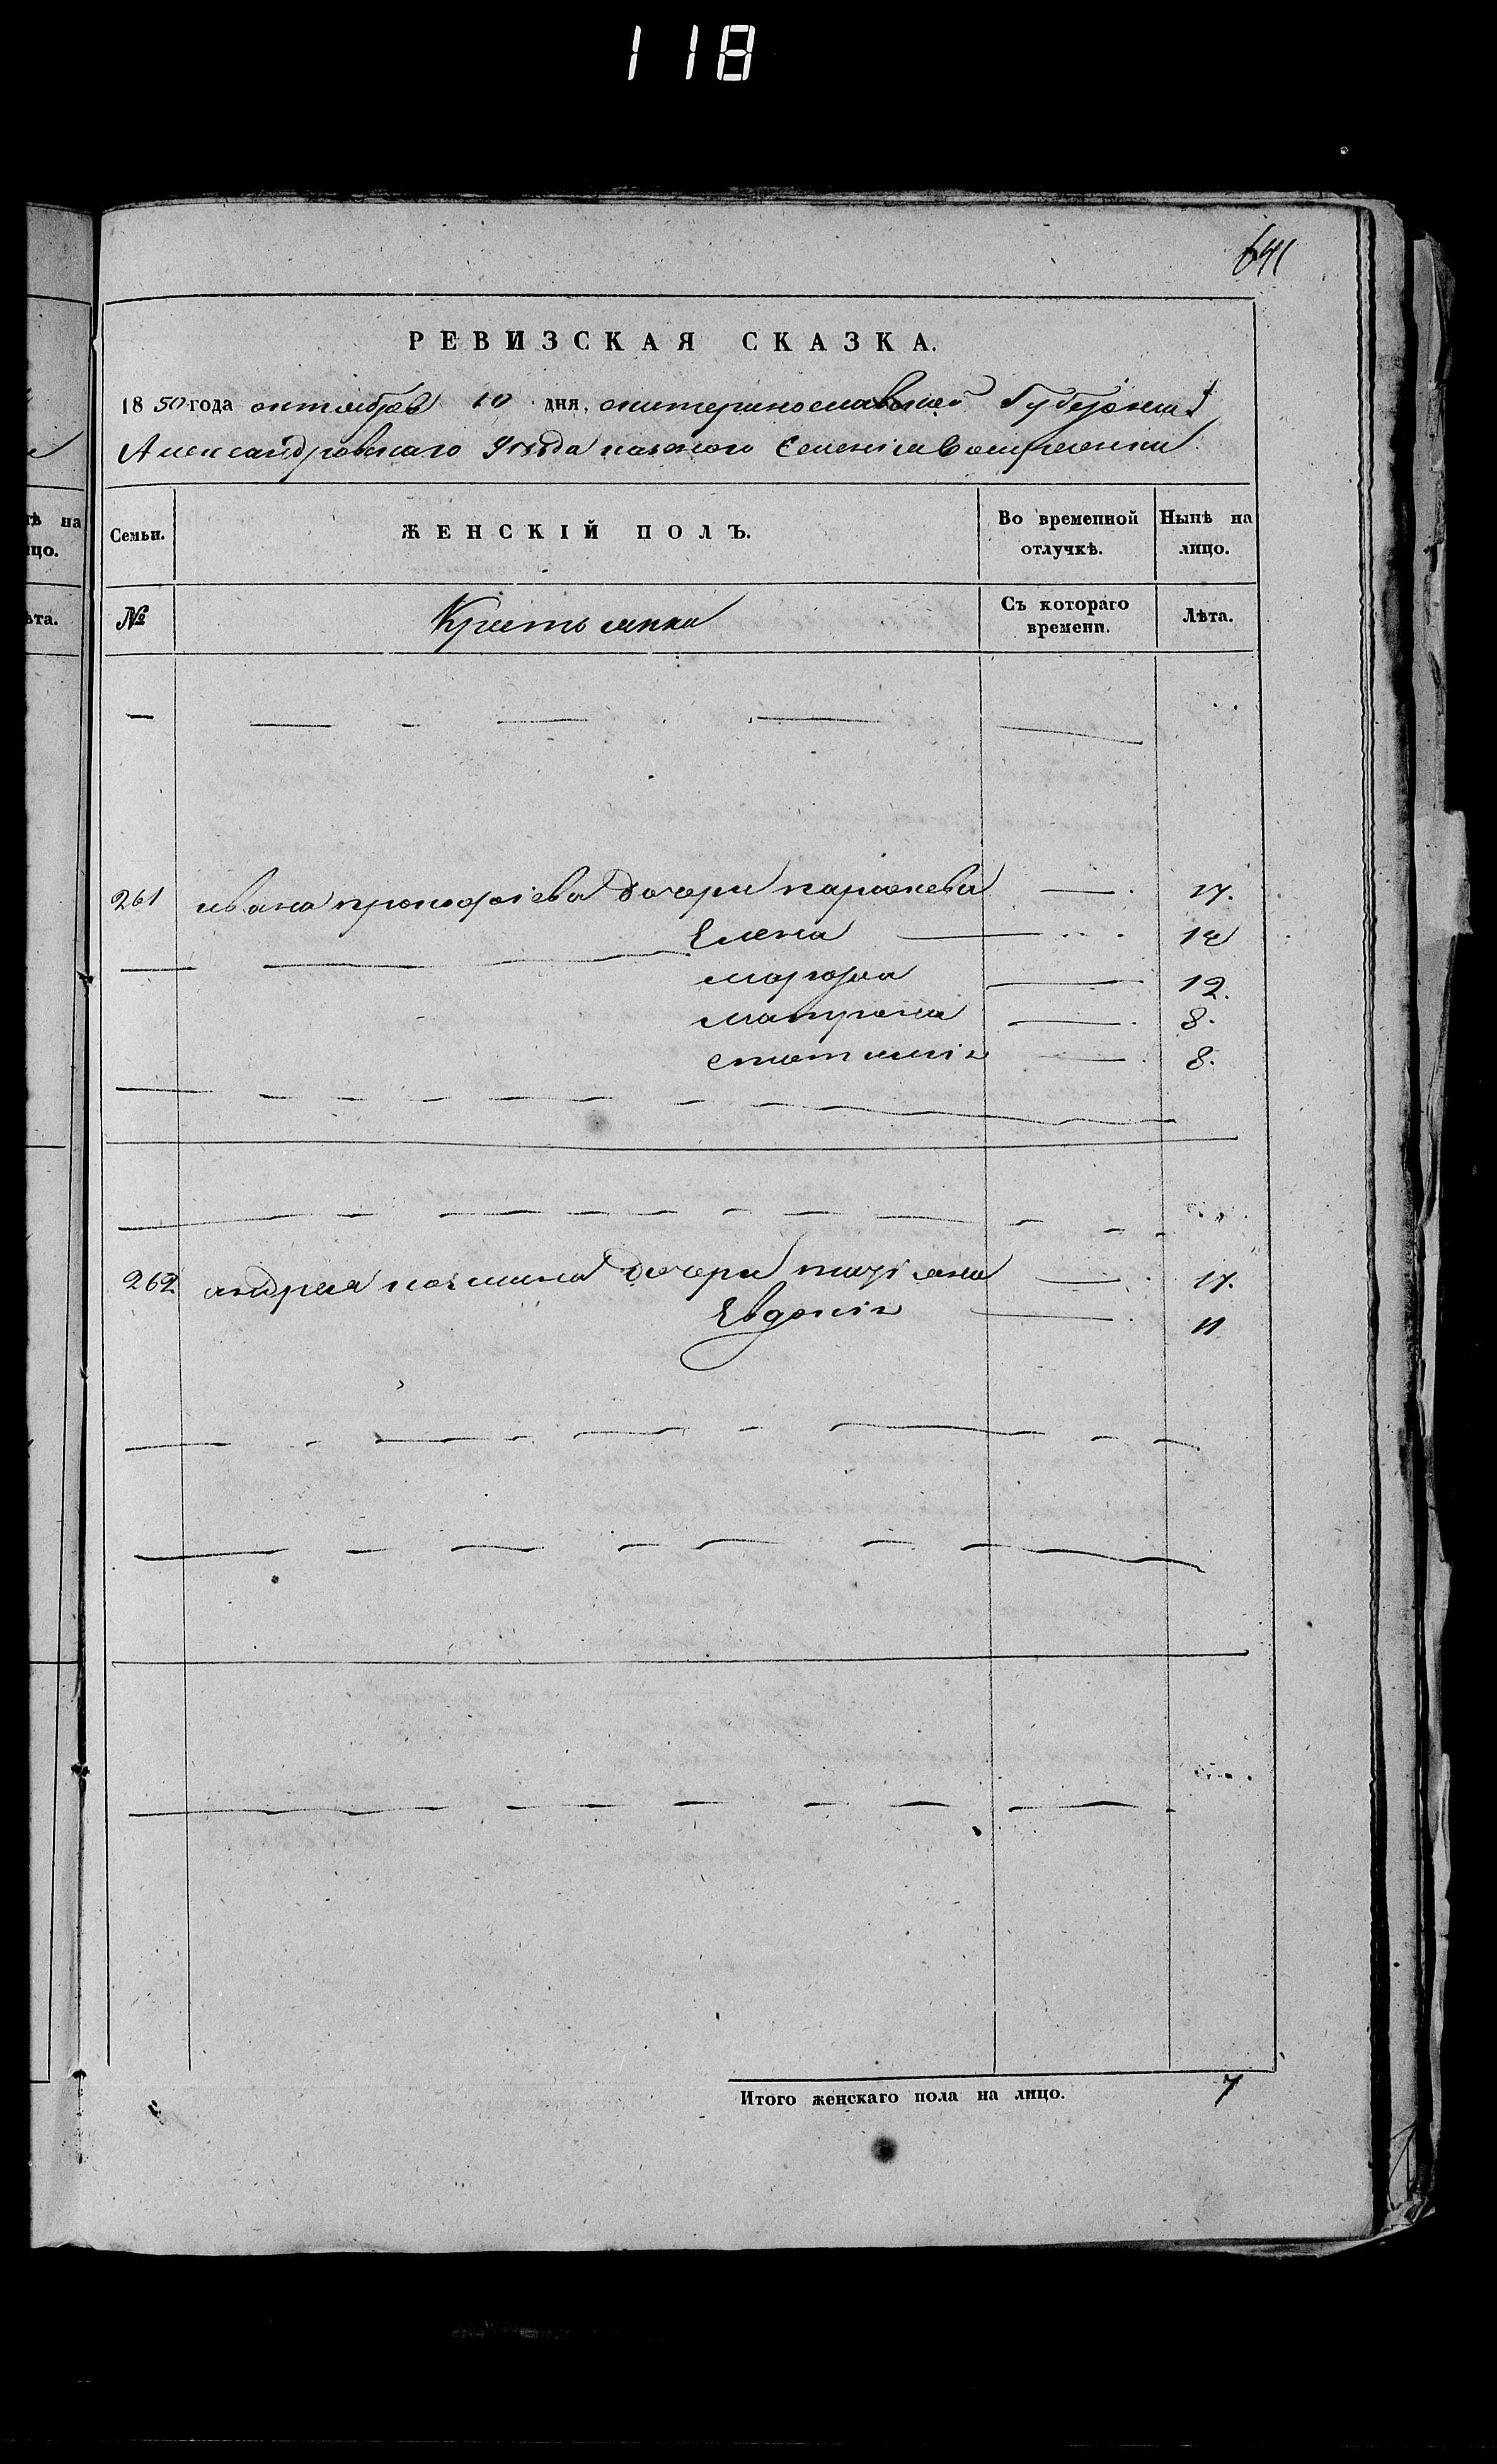 118
641
РЕВИЗСКАЯ СКАЗКА.
1850 года октября 10 дня, екатеринославской Губерніи
Александровскаго Уезда казенного Селенія
Семьи.
ЖЕНСКІЙ ПОЛЪ.
Во временной отлучкѣ.
Нынѣ на лицо.
№
Крестьянки
Съ котораго времени.
Лѣта.
261 ивана прокофіева дочери 17.
Елена
марфа 12.
матрона 8.
8.
262 андрея дочери 17.
Евдокія 11
Итого женскаго пола на лицо. 7